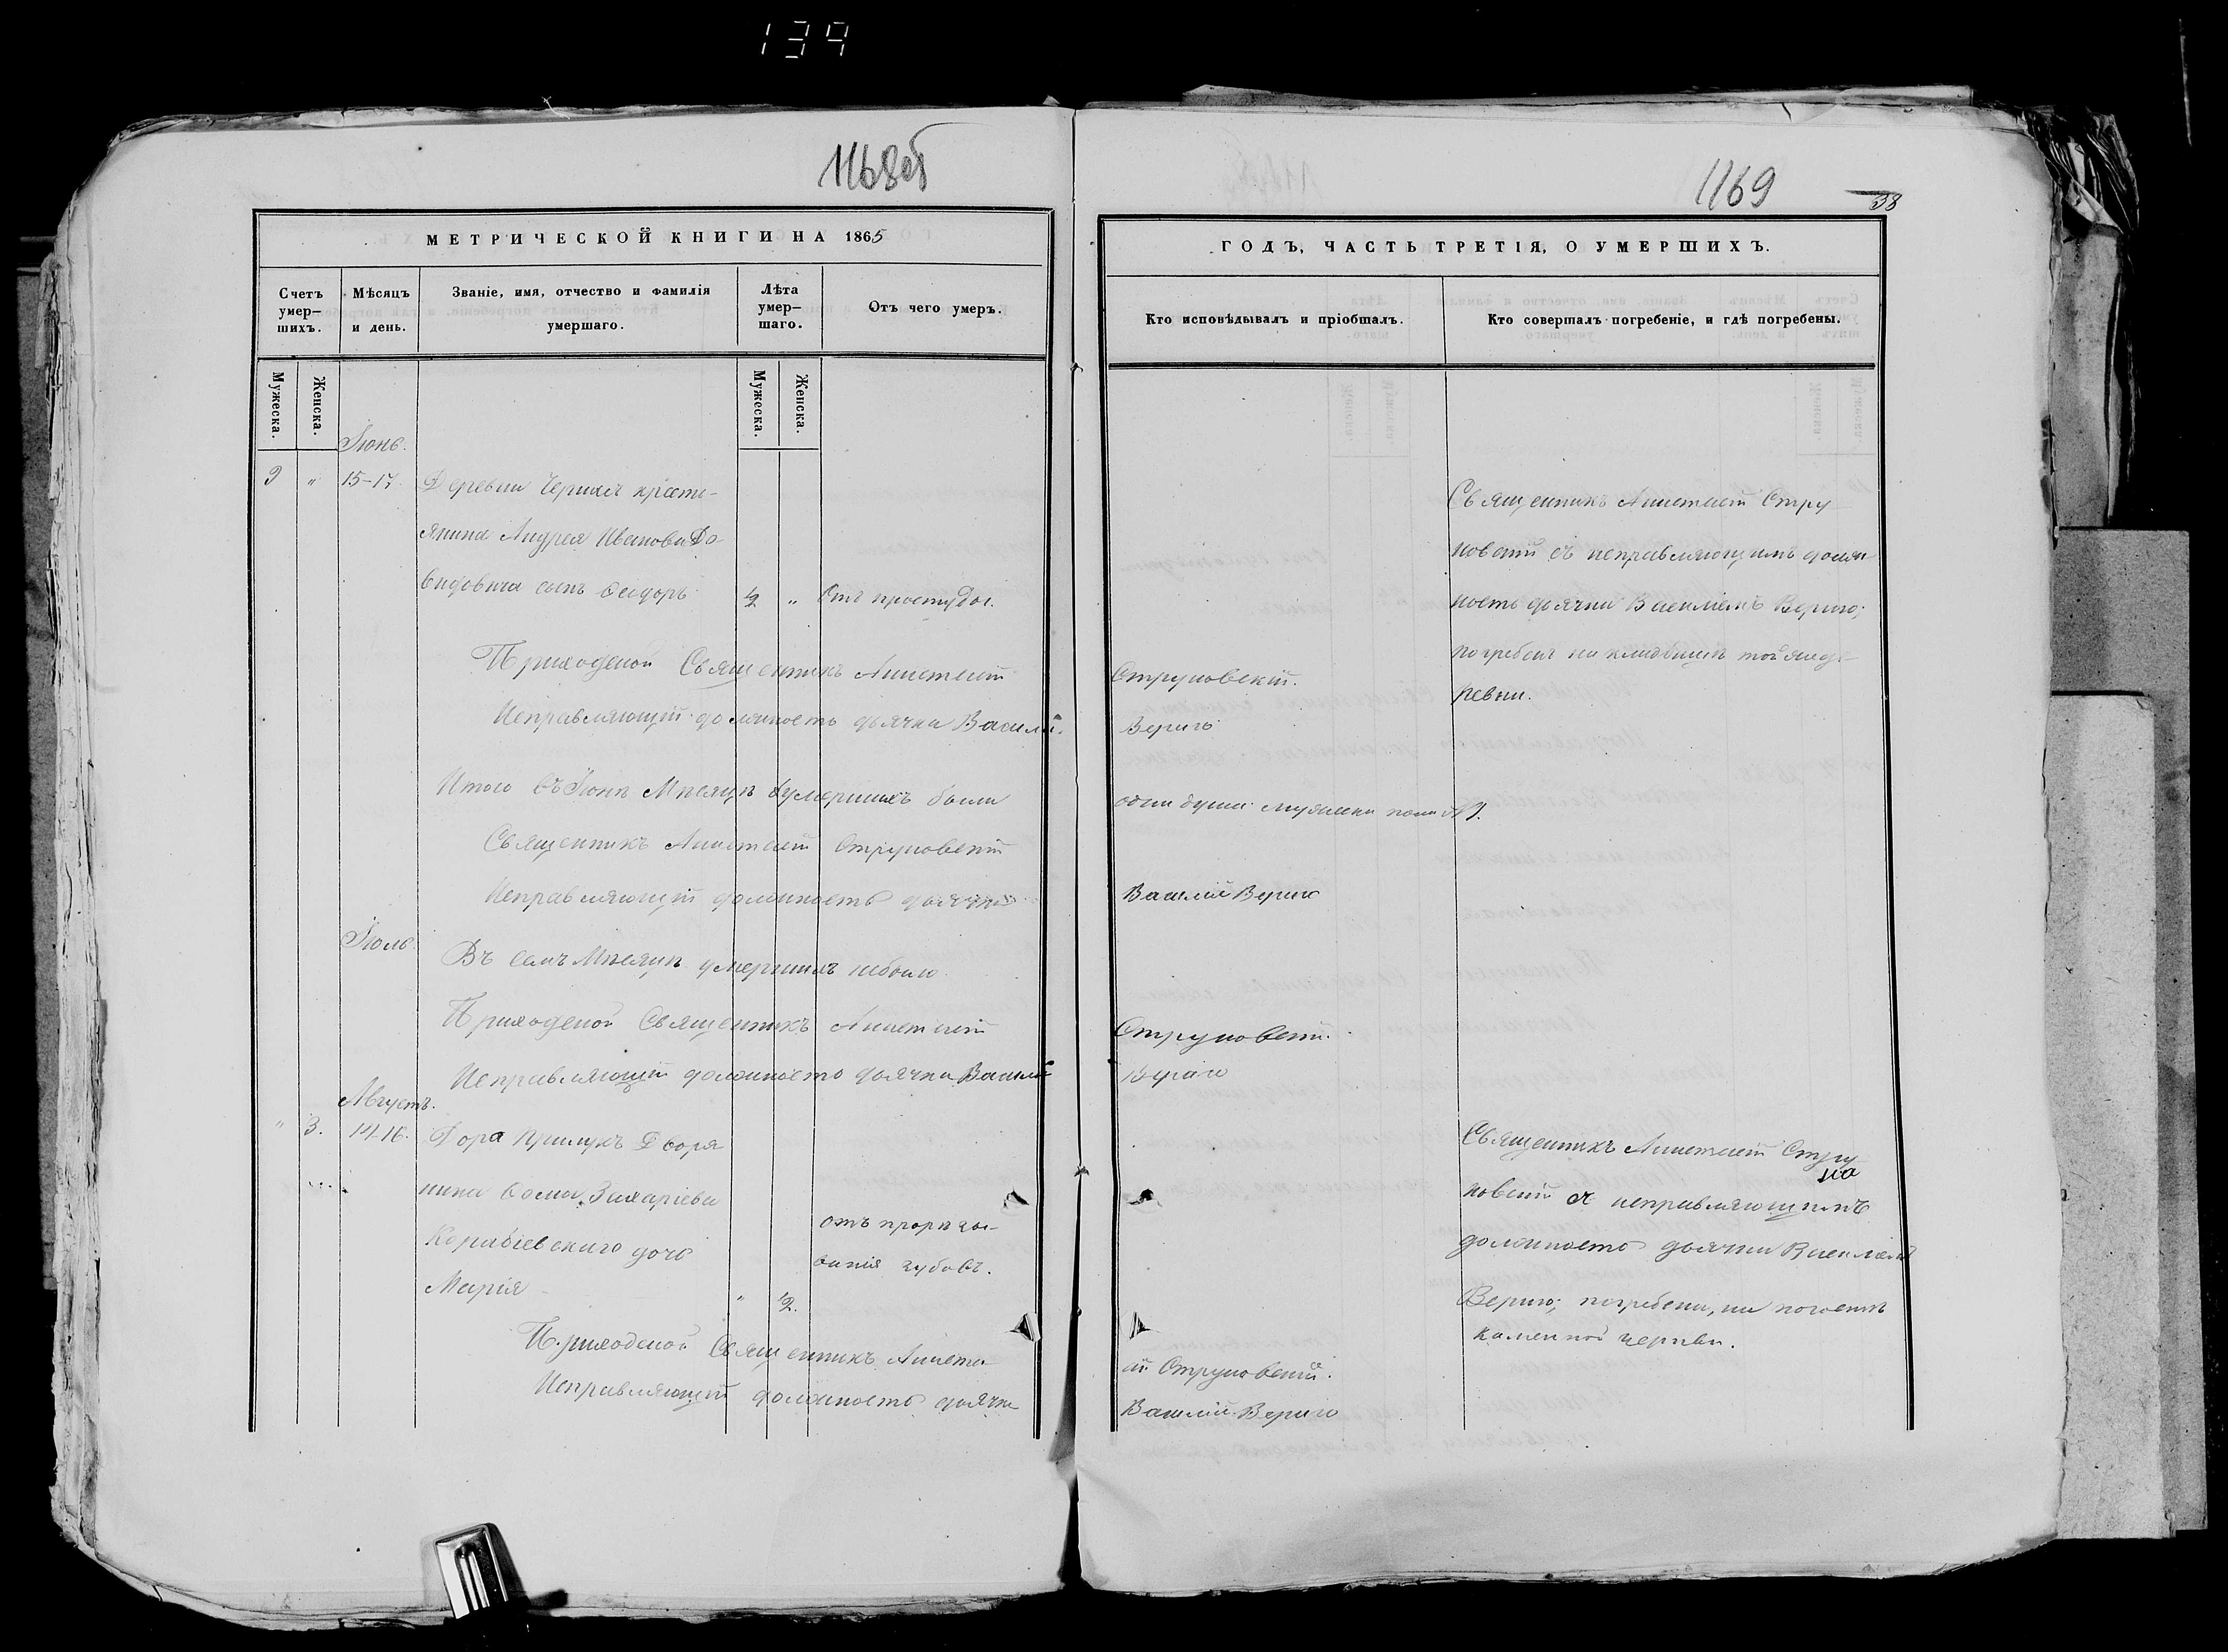 139
1168об
МЕТРИЧЕСКОЙ КНИГИ НА 1865
Счетъ умер–шихъ.
Мѣсяцъ и день.
Званіе, имя, отчество и фамилія умершаго.
Лѣта умер–шаго.
Отъ чего умеръ.
Мужеска.
Женска.
Мужеска.
Женска.
Іюнь.
9 " 15-17. Деревни кресть-
янина Андрея Иванова До-
видовича сынъ Ѳеодоръ ½ " Отъ простуды.
Приходской Священникъ
Исправляющій должность дьячка Василій
Итого въ Іюнѣ Мѣсяцѣ умершихъ было
Священникъ Струковскій
Исправляющій должность дьячка
Іюль
Въ семъ Мѣсяцѣ умершихъ небыло.
Приходской Священникъ
Исправляющій должность дьячка Василій
Августъ.
" 3. 14-16. Двора Прилукъ Дворя
нина Ѳомы Захаріева
дочь
Марія " ½.
отъ прорѣзы-
ванія зубовъ.
Приходской Священникъ
Исправляющій должность дьячка
1169
38
ГОДЪ, ЧАСТЬ ТРЕТІЯ, О УМЕРШИХЪ.
Кто исповѣдывалъ и пріобщалъ.
Кто совершалъ погребеніе, и гдѣ погребены.
Священникъ Стру
ковскій съ исправляющимъ долж
ность дьячка Василіемъ Вериго;
погребенъ на кладбищѣ тойже де-
ревни.
Струковскій.
Вериго
одна душа мужеска пола №1.
Василій Вериго
Струковскій.
Вериго
Священникъ Стру
ковскій съ исправляющимъ
должность дьячка Василіемъ
Вериго; погребена, на погостѣ
каменной церкви.
ій Струковскій.
Василій Вериго